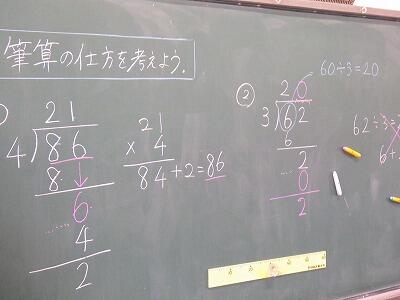 筆算の仕方を考えよう。
21
4)86
8
6
4
2
21
× 4
84+2=86
②
60÷3=20
20
3)62
6
2
0
2
62÷3=
6+